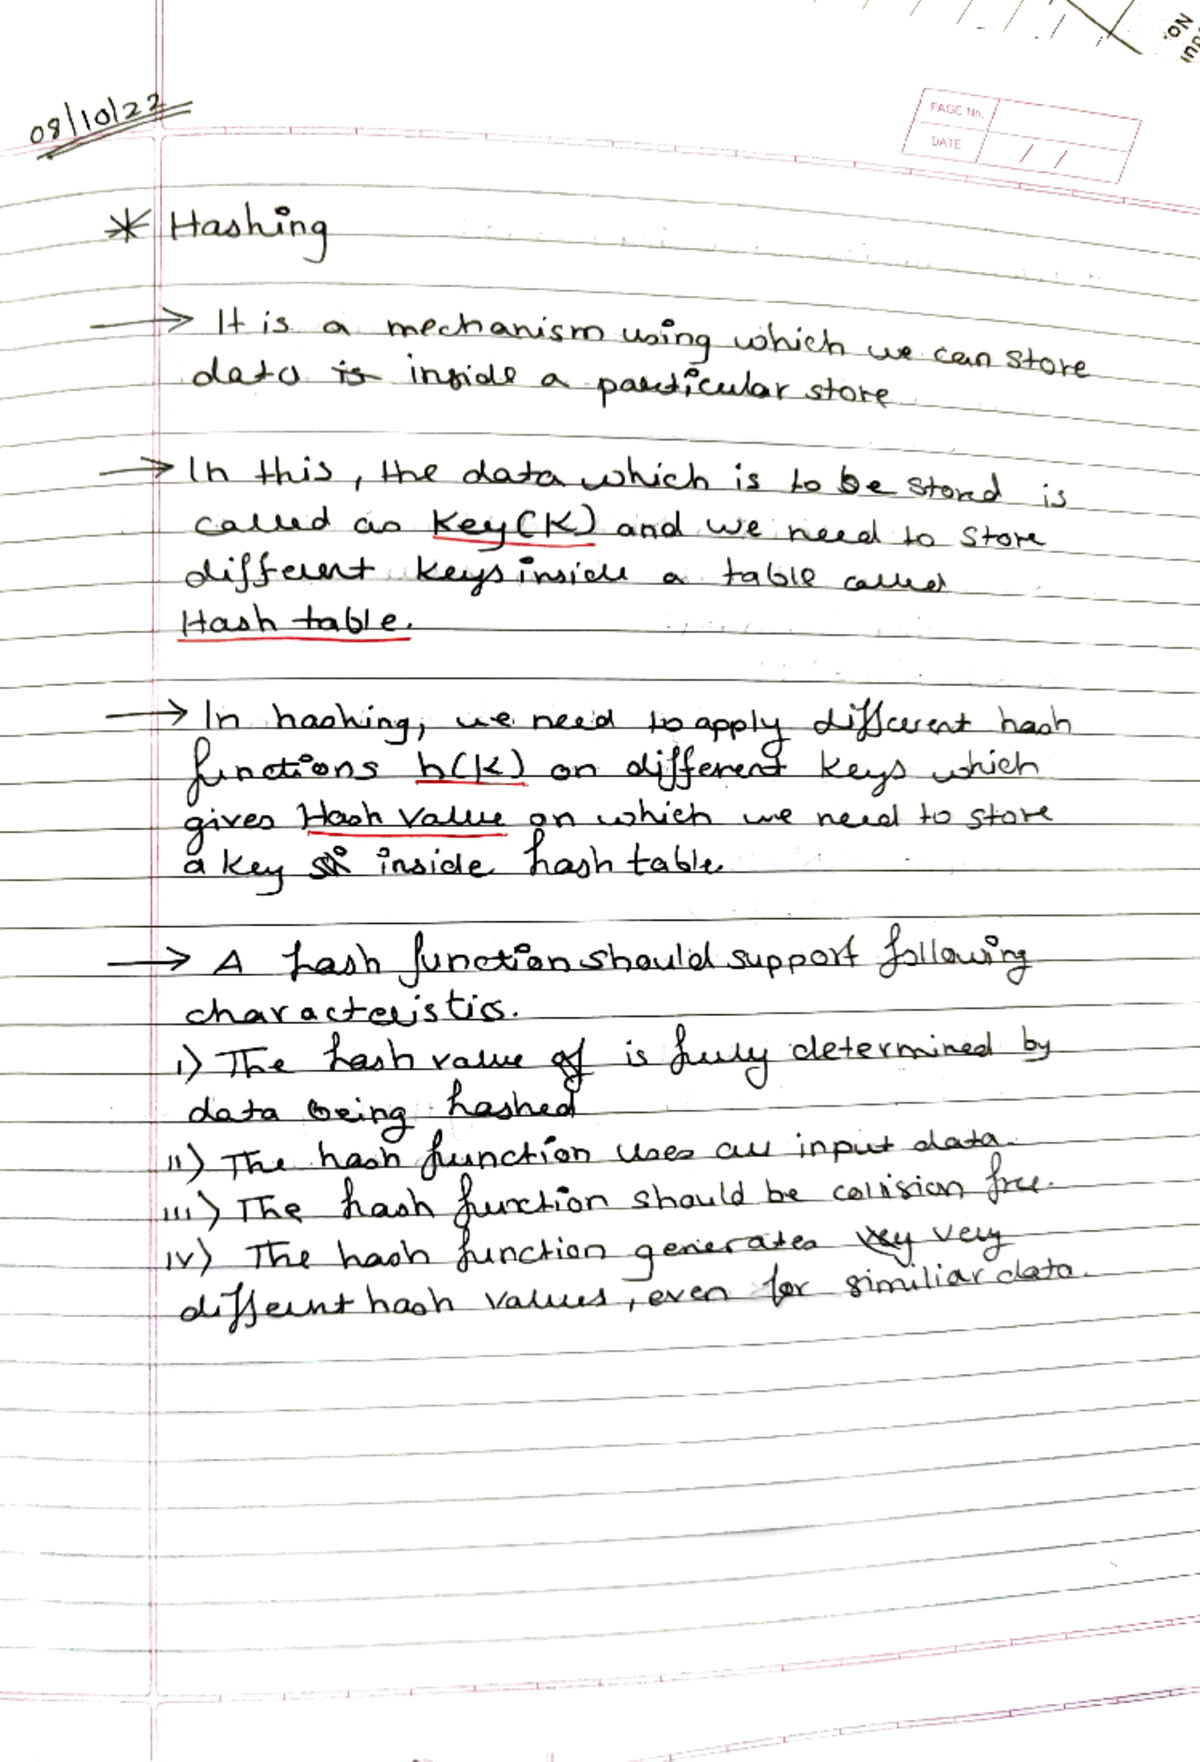 No.
08/10/22
PAGE No.
DATE / /
* Hashing
→ It is a mechanism using which we can store
data is inside a particular store
→ In this, the data which is to be stored is
called as Key(K) and we need to store
different keys inside a table called
Hash table.
→ In hashing, we need to apply different hash
functions h(K) on different keys which
gives Hash Value on which we need to store
a key inside hash table.
→ A hash function should support following
characteristics.
i) The hash value of is fully determined by
data being hashed
ii) The hash function uses all input data.
iii) The hash function should be collision free.
iv) The hash function generates very very
different hash values, even for similiar data.